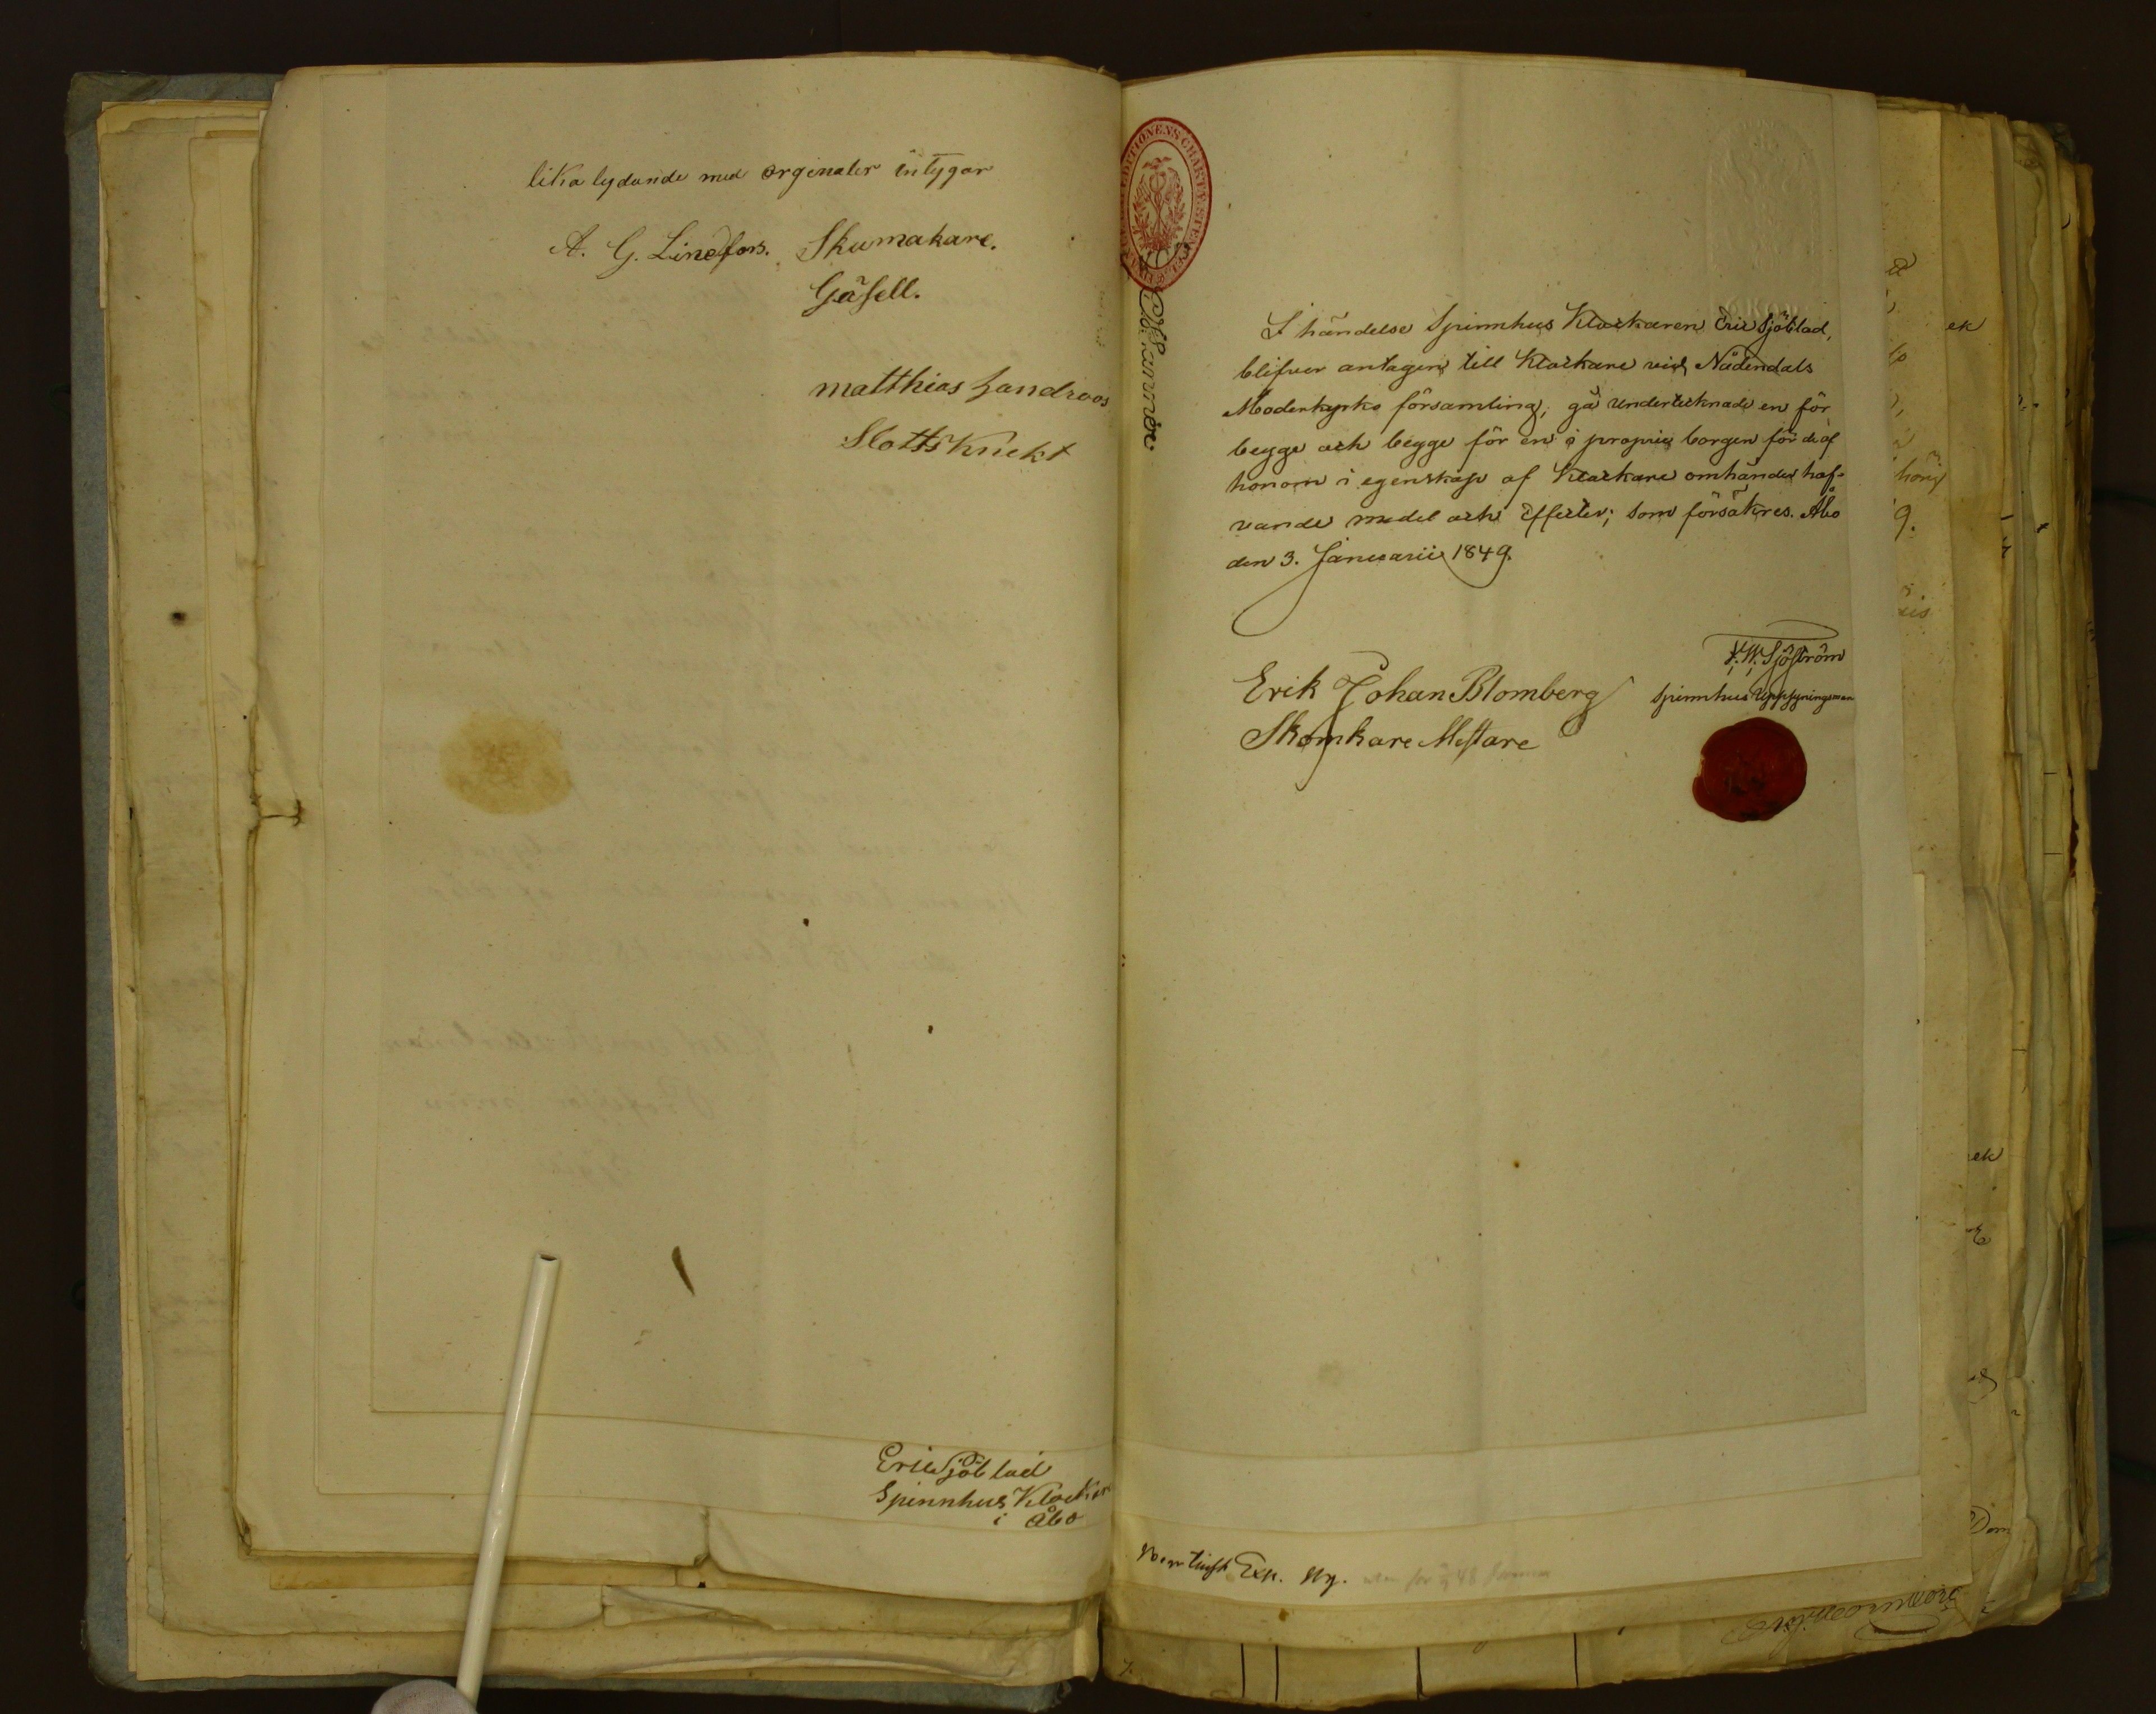 lika lydande med orginaler intygar
A. G. Lindfors. Skumakare.
Gäsell.
matthias Sandroos
Slotts Knekt
Eric Sjöblad
Spinnhus Klockar
i Åbo
I händelse Spinnhus Klockaren Eric Sjöblad,
blifver antagen till Klockare vid Nådendals
Moderkyrko församling, gå undertecknade en för
begge och begge för en i proprie borgen för de af
honom i egenskap af Klockare omhänder haf-
vande medel och Effecter; som försäkres. Åbo
den 3. Januarii 1849.
F. W. Sjöström
Spinnhus Uppsyningsman
Erik Johan Blomberg
Skomkare Mestare
Exp.